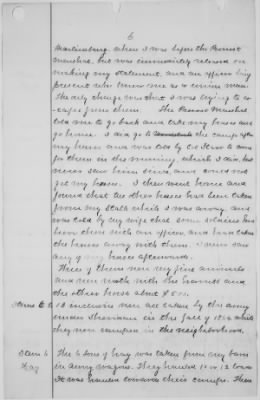 6
Martinsburg where I was before the Provost
Marshal, but was immediately released on
making my statement and an officer being
present who knew me as a union man.
The only charge was that I was trying to es-
cape from them. The Provost Marshal
told me to go back and take my horses and
go home. I did go to the camp after
my horse and was told by to
for them in the morning, which I did, but
never saw them since, and could not
get my horse. I then went home and
found that the other horses had been taken
from my stable while I was away and
was told by my wife that some soldiers had
been there with an officer, and had taken
the horses away with them. I never saw
any of my horses afterwards.
Three of them were very fine animals
and were worth with the
the other horse about $
Items 6 & were taken by the army
under Sheridan in the fall of 1864 while
they were camped in the neighborhood.
Item 6 The 6 tons of hay was taken from my barn
Hay in army wagons. They hauled 10 or 12 loads
It was hauled towards their camps. There